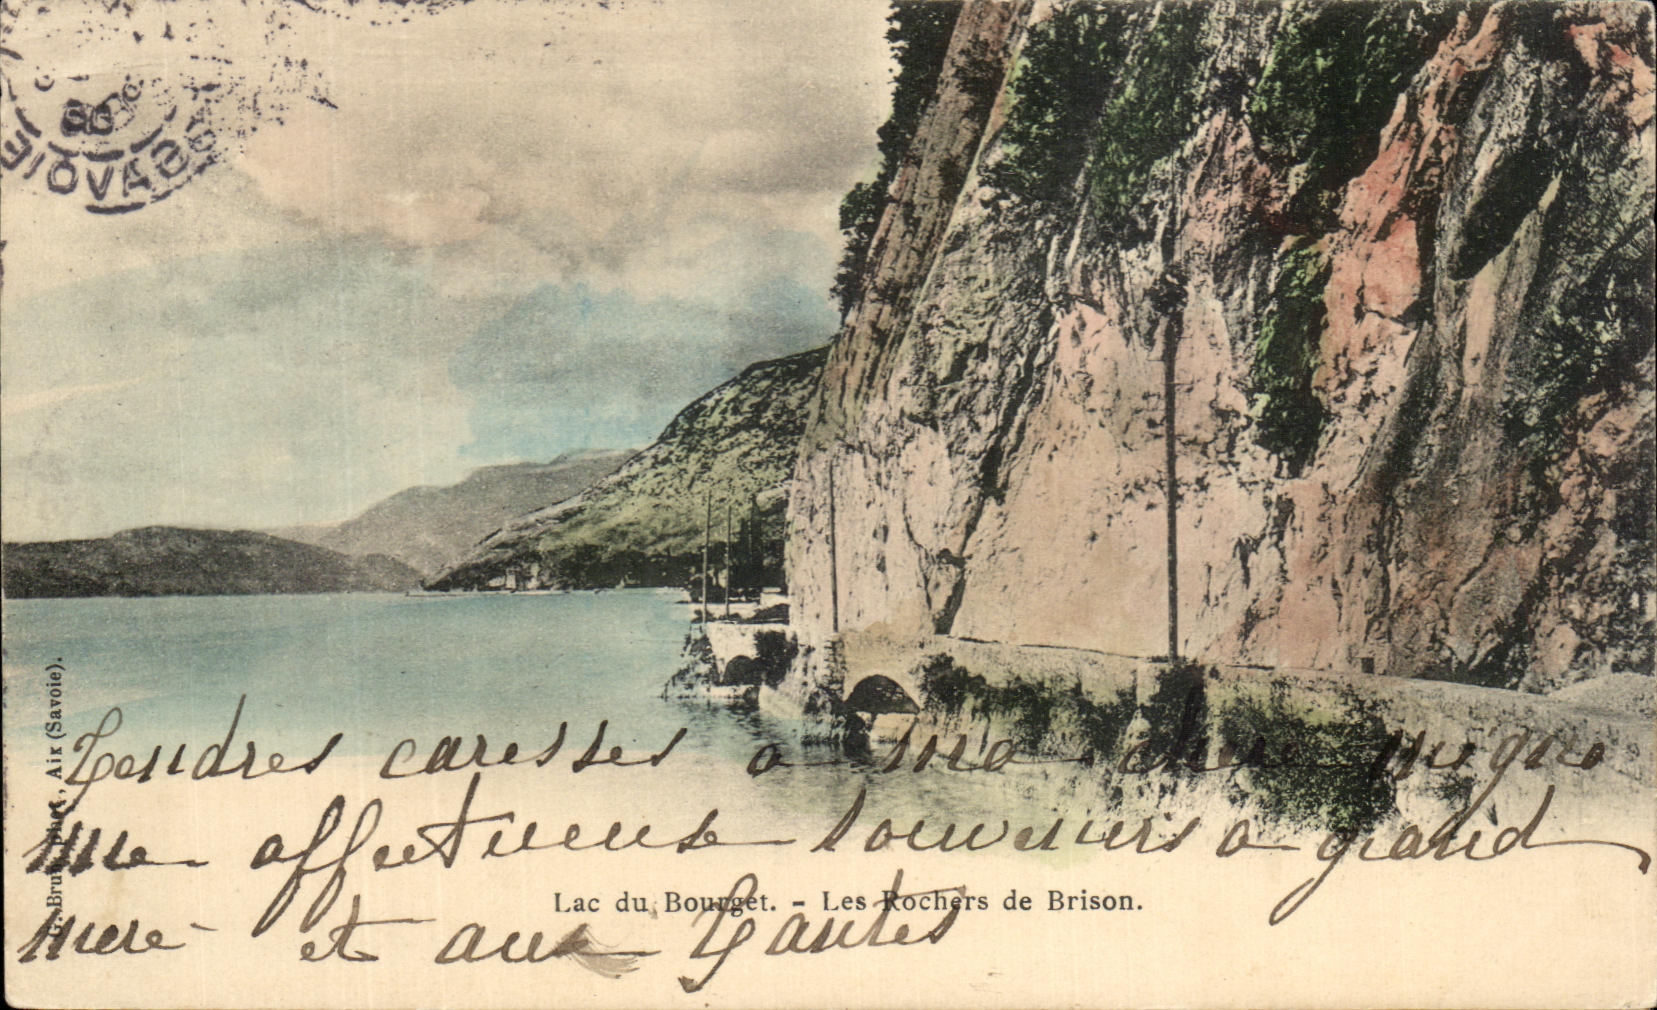 SAVOIE
Tendres caresses a ma chere migno
nne affectueuse souvenirs a grand
mere et aux Tantes
Lac du Bourget. - Les Rochers de Brison.
Aix (Savoie).